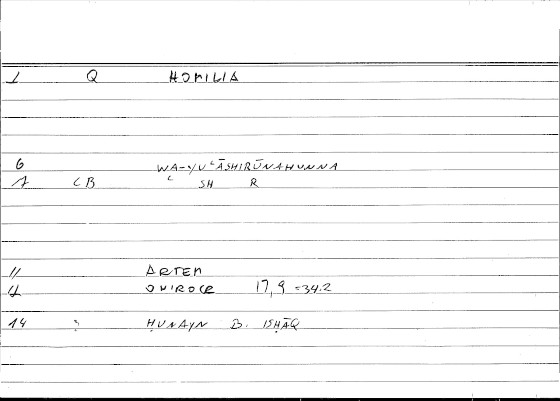 1 Q HOMILIA
6 WA-YUʿĀSHIRŪNAHUNNA
1 CB ʿ SH R
11 ARTEM
4 ONIROCR 17,9 =34.2
14 ? ḤUNAYN B. ISḤĀQ